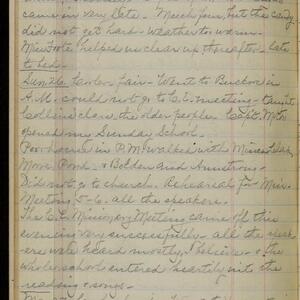 came in very late. March fun, but the candy
did not get hard - weather too warm.
Miss helped me clear up thereafter - late
to bed.
Sun. 26. Cooler, fair - Went to
A.M. could not go to C.E. meeting - taught
Collins class, the older people. Capt.
opened my Sunday School.
Poorhouse in P.M. walked with Misses
Pond & Bolden and Armstrong.
Did not go to church. Rehearsal for Miss.
Meeting 5-6. all the speakers.
The C.E. Missionary Meeting came off this
evening very successfully - all the speak-
ers were heard mostly, I believe - & the
whole school entered heartily into the
reading & songs.